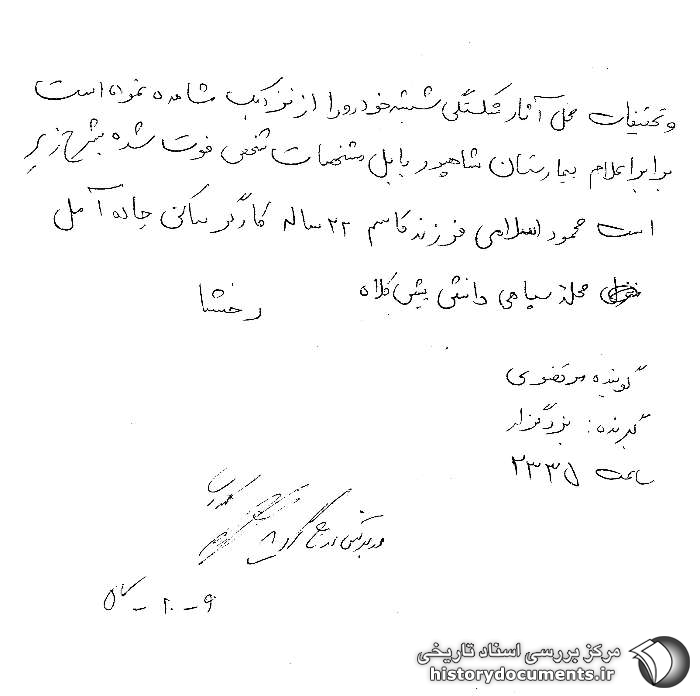 و تحقیقات محل آثار شکستگی شیشه خودرو را از نزدیک مشاهده نموده است
برابر اعلام بیمارستان شاهپور بابل مشخصات شخص فوت شده بشرح زیر
است محمود اسلامی فرزند قاسم ۲۲ ساله کارگر ساکن جاده آمل
محله سپاهی دانش پیش کلاه
رخشا
گوینده مرتضوی
گیرنده: بزرگزار
ساعت ۲۳۳۵
۹-۱۰-۵۷
مرکز بررسی اسناد تاریخی
historydocuments.ir